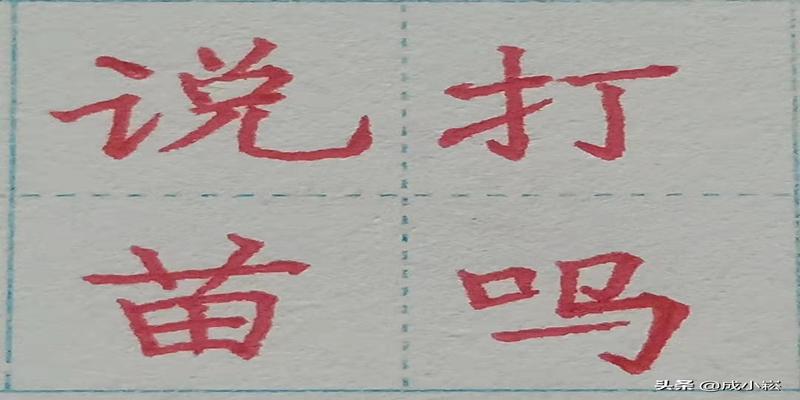 说打
苗吗
头条 @成小崧